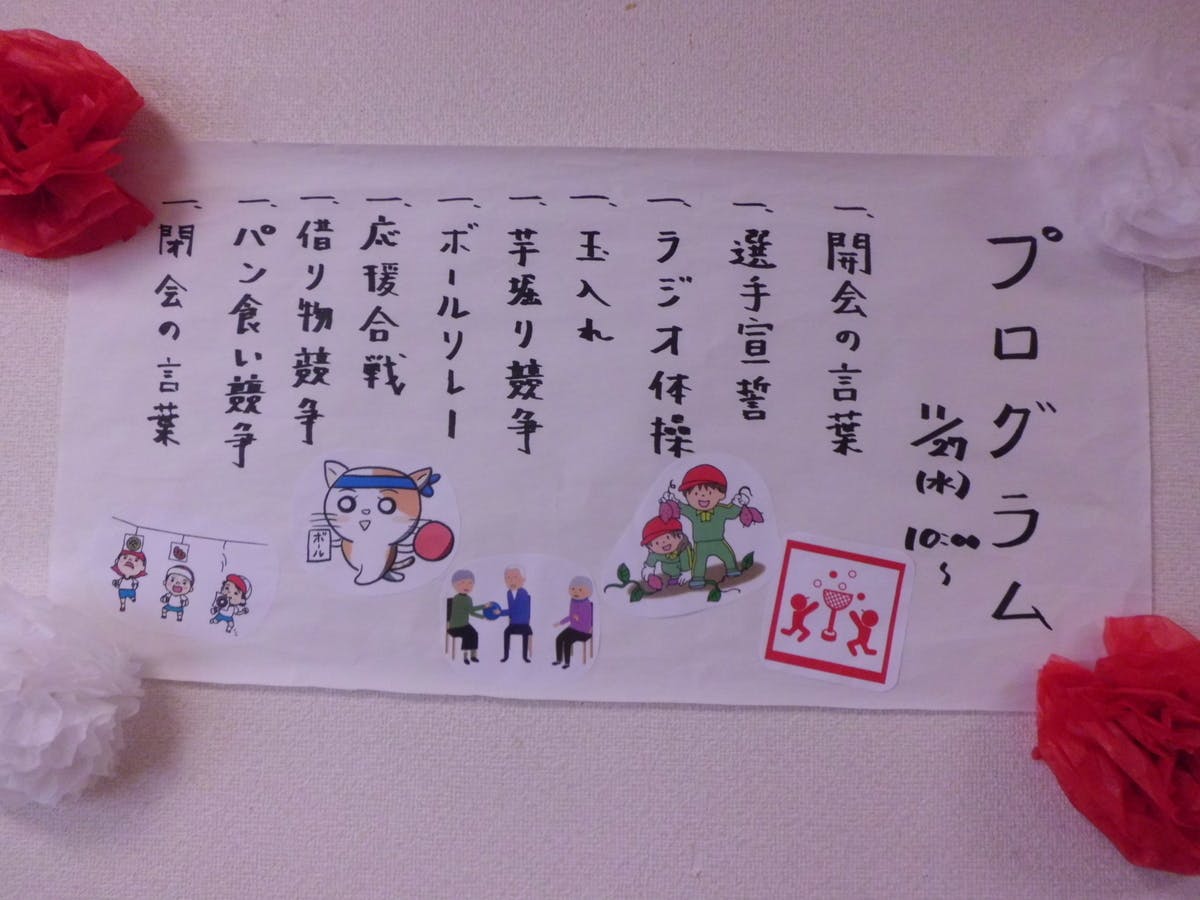 プログラム
11/27(水) 10:00～
一、開会の言葉
一、選手宣誓
一、ラジオ体操
一、玉入れ
一、芋堀り競争
一、ボールリレー
一、応援合戦
一、借り物競争
一、パン食い競争
一、閉会の言葉
ボール